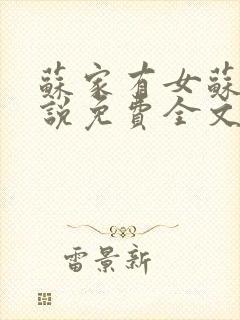 蘇家有女蘇
說免費全文
雷景新